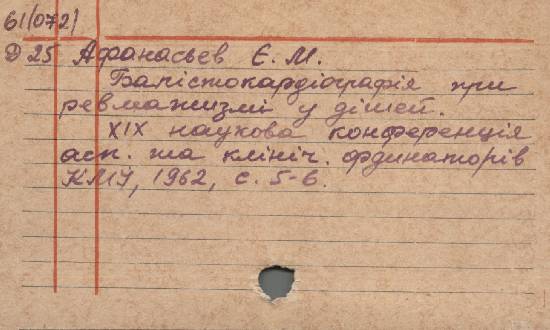 61(072)
Д 25 Афанасьєв Є. М.
Балістокардіографія при
ревматизмі у дітей.
XIX наукова конференція
асп. та клініч. ординаторів
КМУ, 1962, с. 5-6.